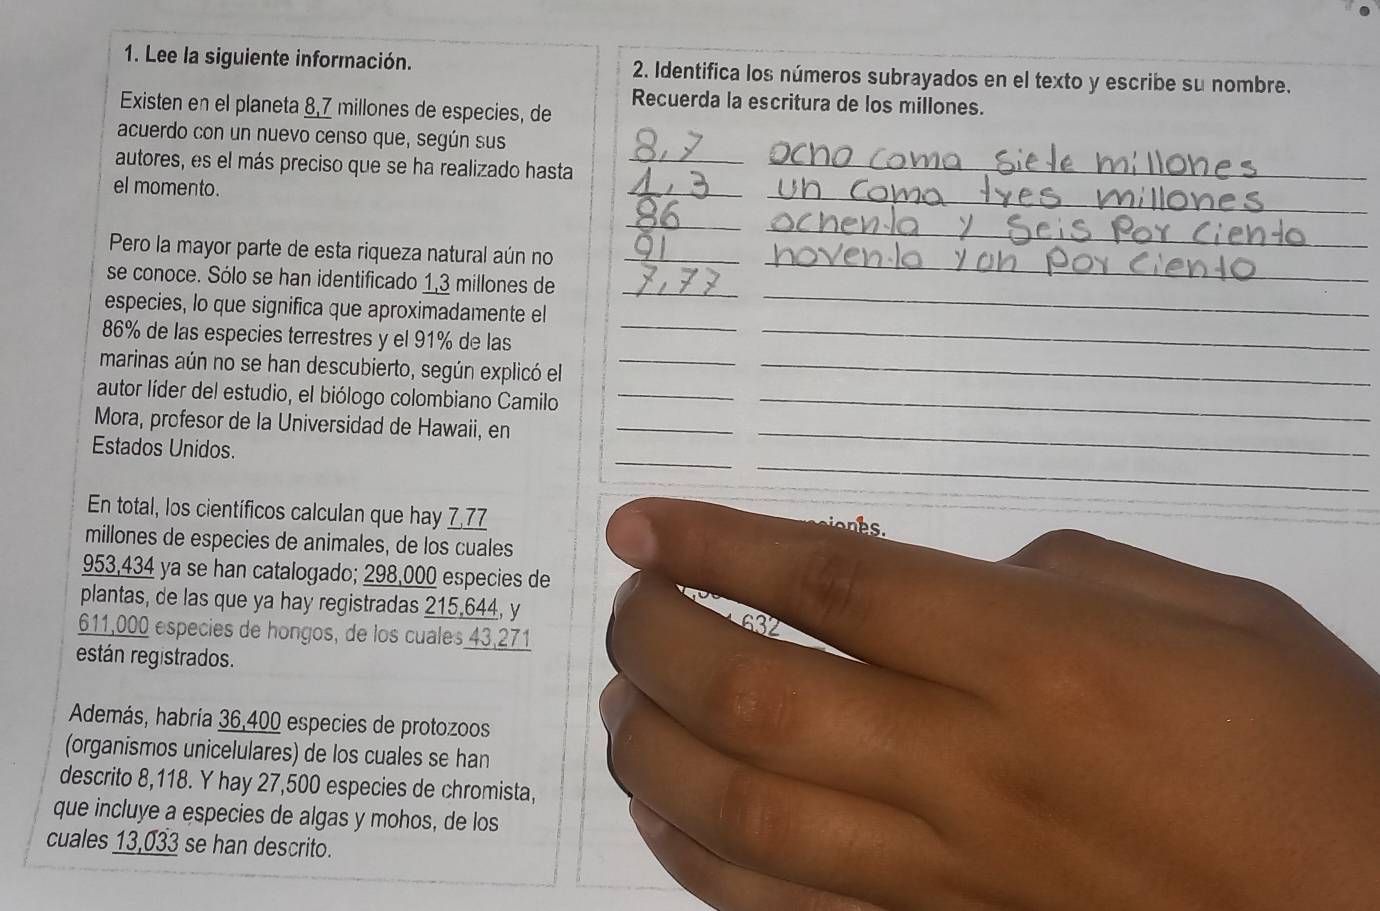 1. Lee la siguiente información.
Existen en el planeta 8,7 millones de especies, de
acuerdo con un nuevo censo que, según sus
autores, es el más preciso que se ha realizado hasta
el momento.
Pero la mayor parte de esta riqueza natural aún no
se conoce. Sólo se han identificado 1,3 millones de
especies, lo que significa que aproximadamente el
86% de las especies terrestres y el 91% de las
marinas aún no se han descubierto, según explicó el
autor líder del estudio, el biólogo colombiano Camilo
Mora, profesor de la Universidad de Hawaii, en
Estados Unidos.
En total, los científicos calculan que hay 7,77
millones de especies de animales, de los cuales
953,434 ya se han catalogado; 298,000 especies de
plantas, de las que ya hay registradas 215,644, y
611,000 especies de hongos, de los cuales 43,271
están registrados.
Además, habría 36,400 especies de protozoos
(organismos unicelulares) de los cuales se han
descrito 8,118. Y hay 27,500 especies de chromista,
que incluye a especies de algas y mohos, de los
cuales 13,033 se han descrito.
2. Identifica los números subrayados en el texto y escribe su nombre.
Recuerda la escritura de los millones.
8,7 ocho coma siete millones
1,3 un coma tres millones
86 ochenta y seis por ciento
91 noventa y un por ciento
7,77
632